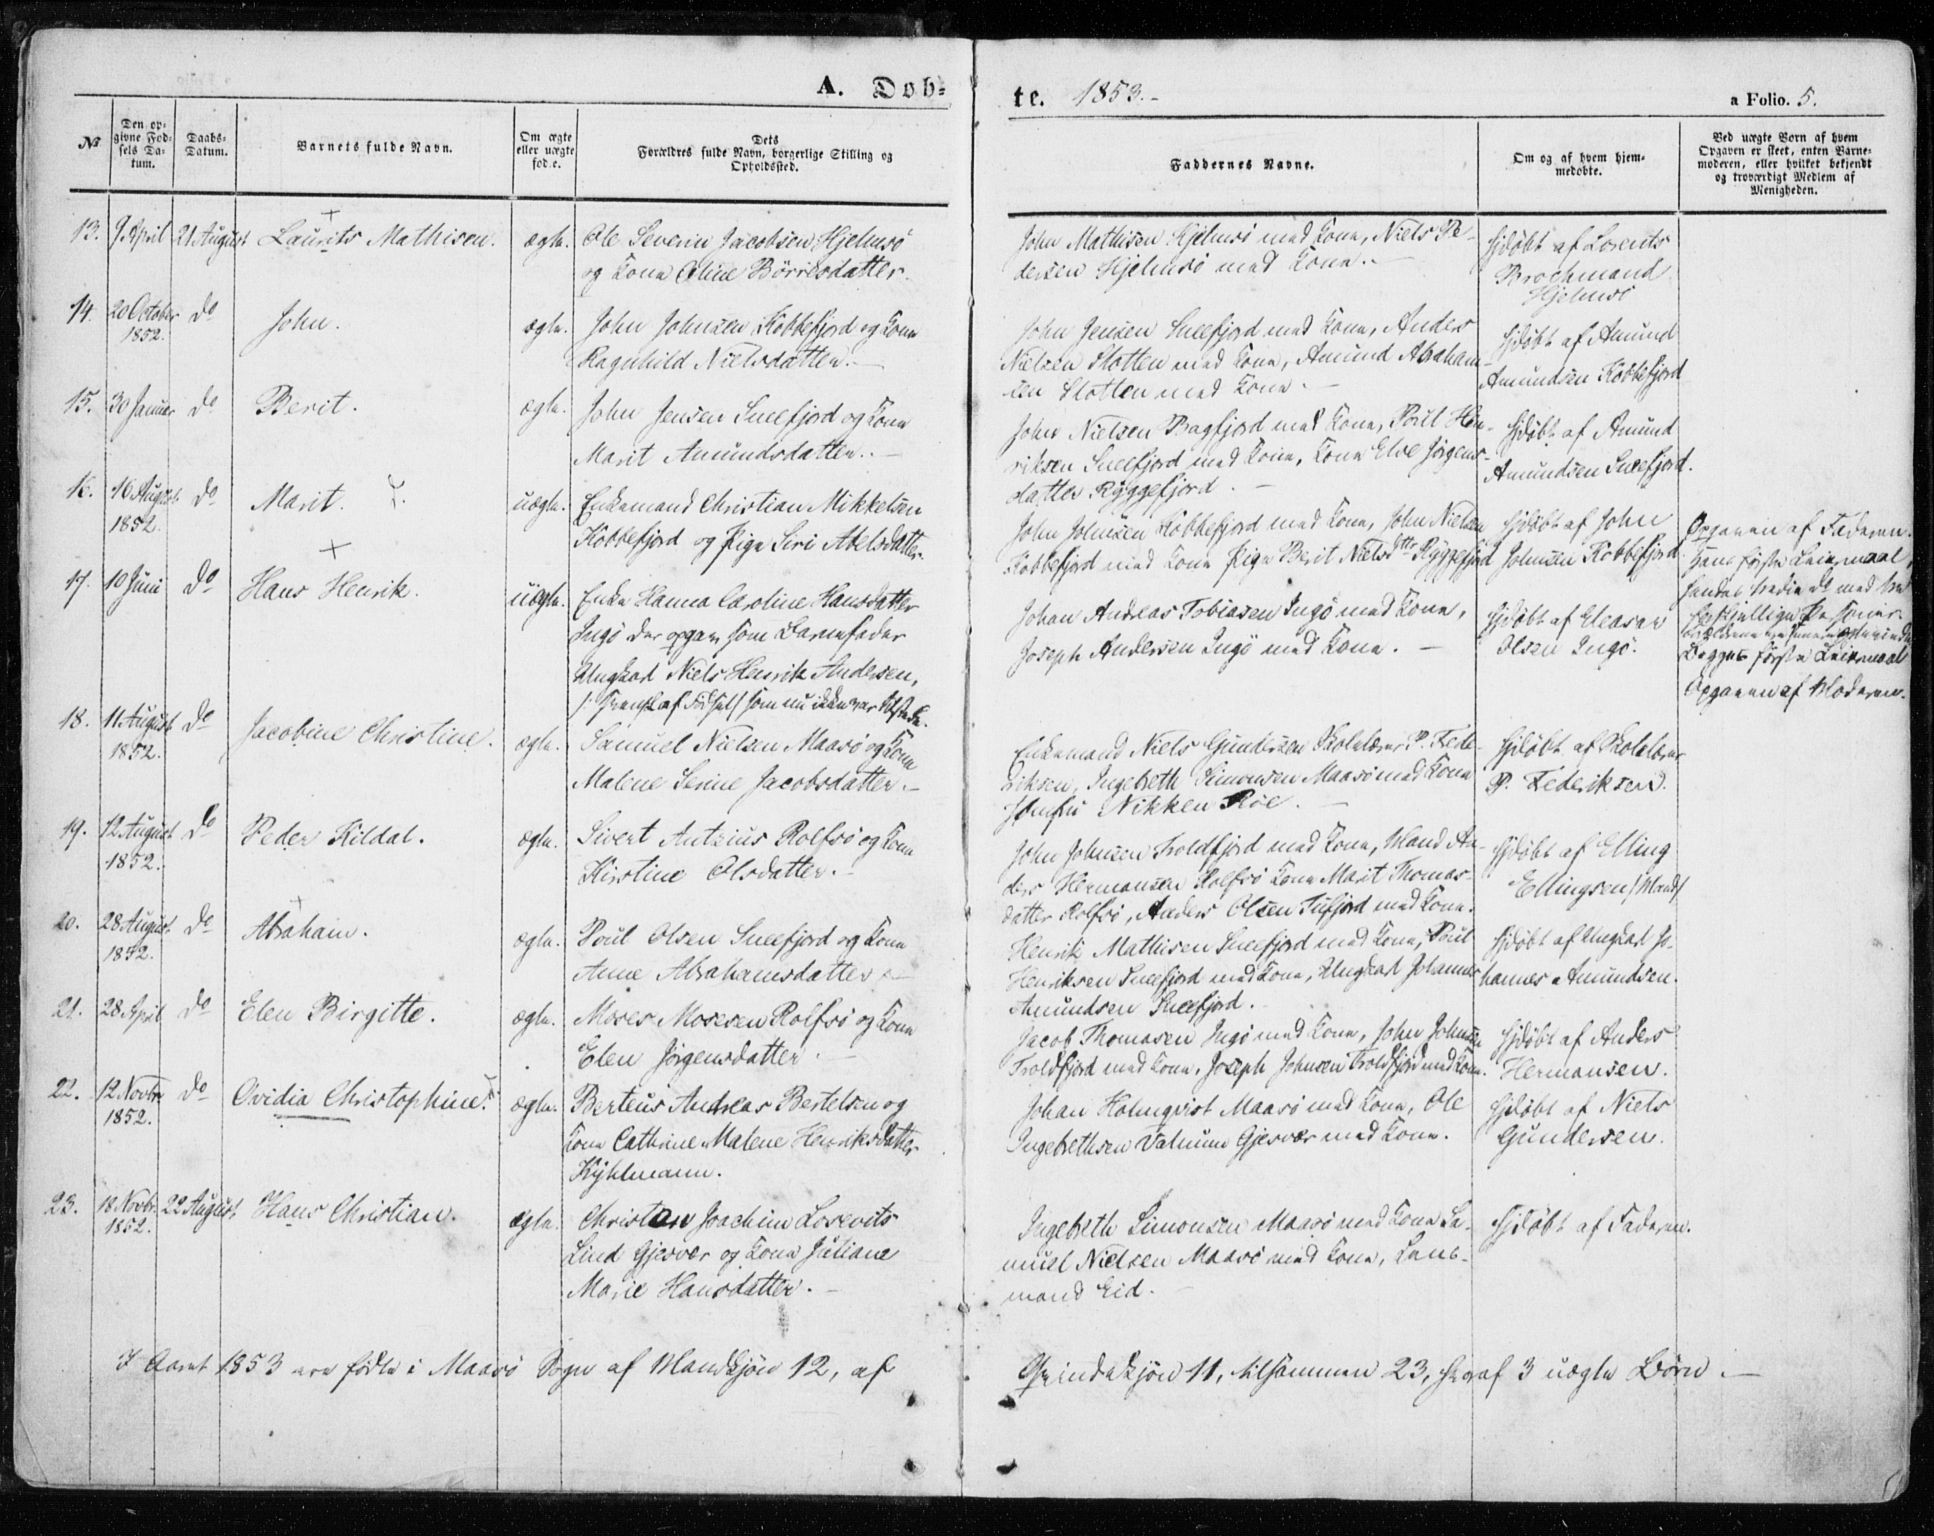 A. Døb-
te. 1853.-
a Folio. 5.
No
Den opgivne Fødsels Datum.
Daabs-Datum.
Barnets fulde Navn.
Om ægte eller uægte fød.e.
Dets
Forældres fulde Navn, borgerlige Stilling og
Opholdssted.
Faddernes Navne.
Om og af hvem hjemmedøbte.
Ved uægte Born af hvem
Opgaven er skeet, enten Barne-
moderen, eller hvilket bekjendt
og troværdigt Medlem af
Menigheden.
13. 9 April 21 August Laurits Mathisen. ægte. Ole Severin Jacobsen Hjelmsö
og Kone Oline Börresdatter.
John Mathisen Hjelmsö med Kone, Niels Pe-
dersen Hjelmsö med Kone.-
Hjdöbt af Lorents
Brochmand
Hjelmsö
14. 20 October 1852. do John. ægte. John Johnsen Kobbefjord og Kone
Ragnhild Nielsdatter.-
John Jensen Sneefjord med Kone, Anders
Nielsen Slotten med Kone, Amund Abraham-
sen Slotten med Kone.-
Hjdöbt af Amund
Amundsen Kobbefjord
15. 30 Januar do Berit. ægte. John Jensen Sneefjord og Kone
Marit Amundsdatter.-
John Nielsen Bagfjord med Kone, Poul Hen-
riksen Sneefjord med Kone, Kone Else Jörgens-
datter Ryggefjord.-
Hjdöbt af Amund
Amundsen Sneefjord.
16. 16 August 1852. do Marit. uægte. Enkemand Christian Mikkelsen
Kobbefjord og Pige Siri Abelsdatter.
John Johnsen Kobbefjord med Kone, John Nielsen
Kobbefjord med Kone Pige Berit Nielsdtr Ryggefjord
Hjdöbt af John
Johnsen Kobbefjord
Opgaven af Faderen.
Hans förste Leiermaal,
hendes tredie do med tre
forskjellige Personer.
17. 10 Juni do Hans Henrik. uægte. Enke Hanna Caroline Hansdatter
Ingö der opgav som Barnefader
Ungkarl Niels Henrik Andersen,
som nu ikke var tilstede.
Johan Andreas Tobiasen Ingö med Kone,
Joseph Andersen Ingö med Kone.-
Hjdöbt af Eleasar
Olsen Ingö.
Begges förste Leiermaal
Opgaven af Moderen.
18. 11 August 1852. do Jacobine Christine. ægte. Samuel Nielsen Maasö og Kone
Malene Serine Jacobsdatter.-
Enkemand Niels Gundersen Skolelærer P. Fede-
riksen, Ingebreth Simonsen Maasö med Kone
Jomfru Nikken Röe.-
Hjdöbt af Skolelærer
P. Federiksen.
19. 12 August 1852. do Peder Kildal. ægte. Sivert Antzius Rolfsö og Kone
Kirstine Olsdatter.-
John Johnsen Troldfjord med Kone, Mand An-
ders Hermansen Rolfsö Kone Marit Thomas-
datter Rolfsö, Anders Olsen Tufjord med Kone.
Hjdöbt af Elling
Ellingsen /Mand/
20. 28 August 1852. do Abraham. ægte. Poul Olsen Sneefjord og Kone
Anne Abrahamsdatter.-
Henrik Mathisen Sneefjord med Kone, Poul
Henriksen Sneefjord med Kone, Ungkarl Johannes
Amundsen Sneefjord.-
Hjdöbt af Ungkarl Jo-
hannes Amundsen.
21. 28 April do Elen Birgitte. ægte. Moses Mosesen Rolfsö og Kone
Elen Jörgensdatter.-
Jacob Thomasen Ingö med Kone, John Johnsen
Troldfjord med Kone, Joseph Johnsen Troldfjord med Kone.
Hjdöbt af Anders
Hermansen.
22. 12 Novbr 1852. do Ovidia Christophine. ægte. Berteus Andreas Bertelsen og
Kone Cathrine Malene Henriksdatter
Kyhlmann.
Johan Holmqvist Maasö med Kone, Ole
Ingebrethsen Valnum Gjesvær med Kone.
Hjdöbt af Niels
Gundersen.
23. 18 Novbr. 1852. 22 August. Hans Christian. ægte. Christan Joachim Losevits
Lind Gjesvær og Kone Juliane
Marie Hansdatter.-
Ingebreth Simonsen Maasö med Kone Sa-
muel Nielsen Maasö med Kone, Lens-
mand Eid.-
Hjdöbt af Faderen.
I Aaret 1853 ere födte i Maasö Sogn af Mandkjön 12, af
Qvindekjön 11, tilsammen 23, hvoraf 3 uægte Börn.-